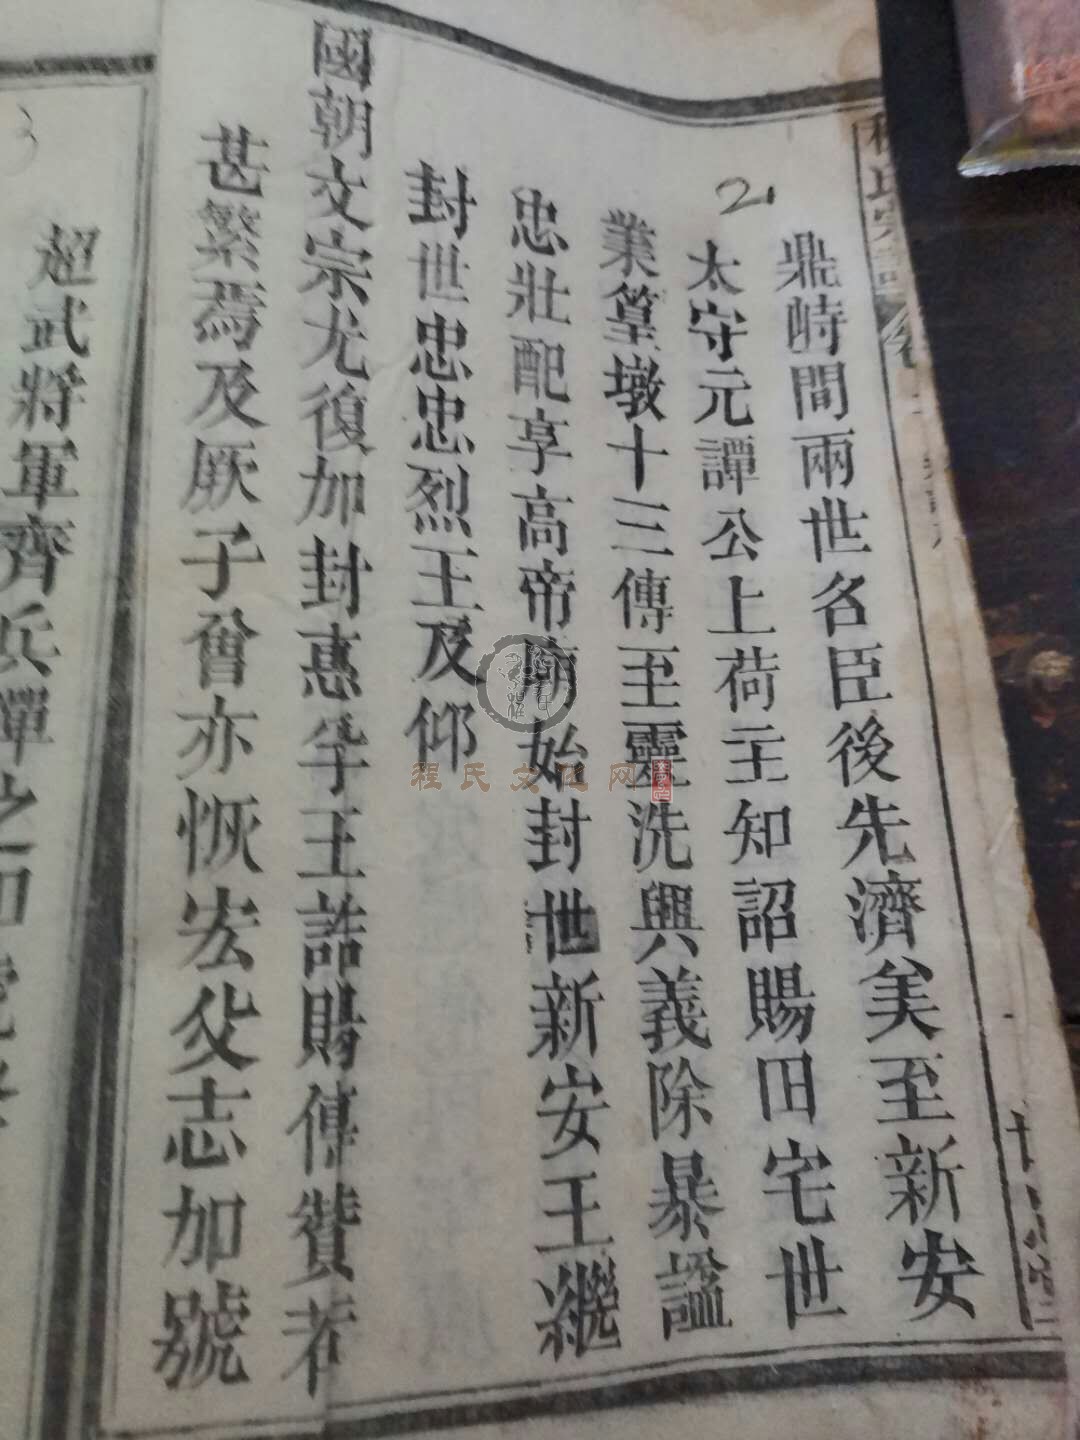 鼎峙間兩世名臣後先濟美至新安
21
太守元譚公上荷主知詔賜田宅世
業篁墩十三傳至靈洗興義除暴謚
忠壯配享高帝廟始封世新安王繼
封世忠忠烈王及仰
國朝文宗尤復加封惠孚王誥賜傳贊若
甚繁焉及厥子曾亦恢宏父志加號
3
超武將軍齊兵
程氏文化网